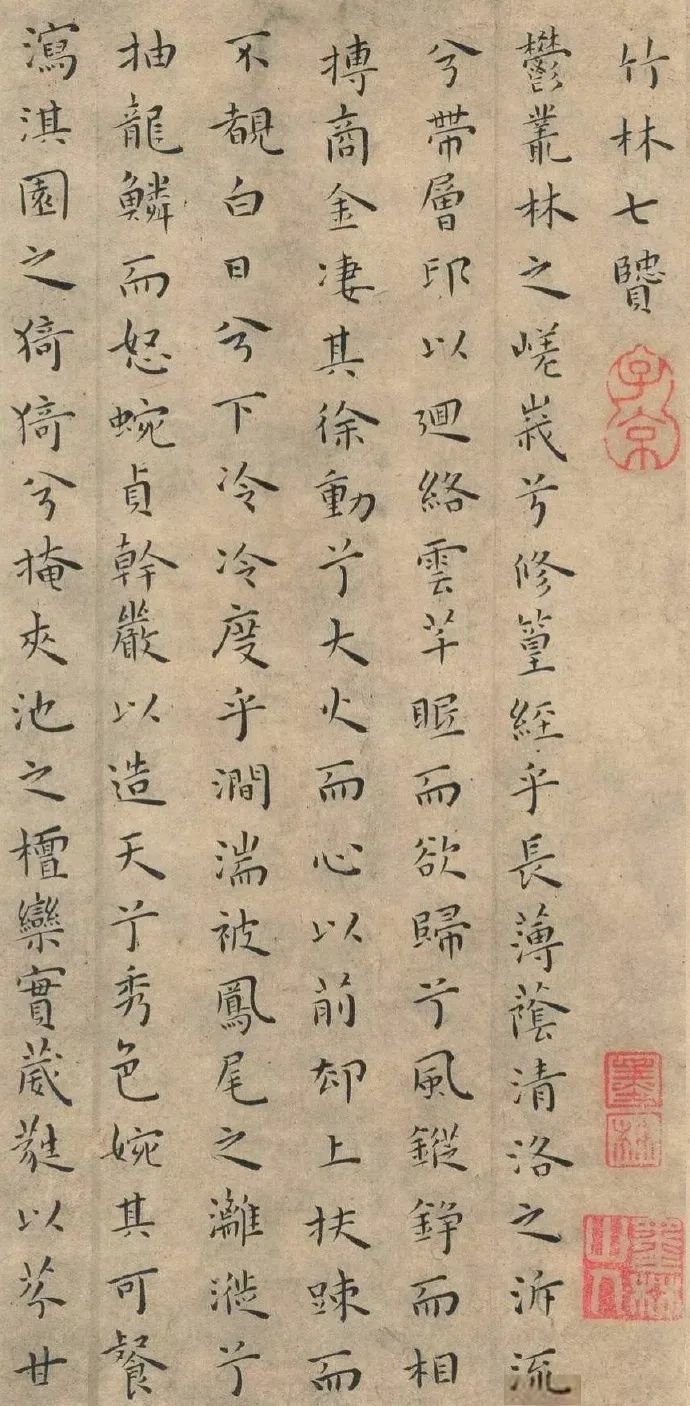 竹林七賢
子京
墨林
墨林山人
鬱叢林之嵯峩兮修篁經乎長薄蔭清洛之泝流
兮帶層邱以迴絡雲芊眠而欲歸兮風鏦錚而相
摶商金凄其徐動兮大火而心以前却上扶踈而
不覩白日兮下冷冷度乎澗湍被鳳尾之灕漇兮
抽龍鱗而怒蜿貞幹嚴以造天兮秀色婉其可餐
瀉淇園之猗猗兮掩夾池之檀欒實葳蕤以芬甘